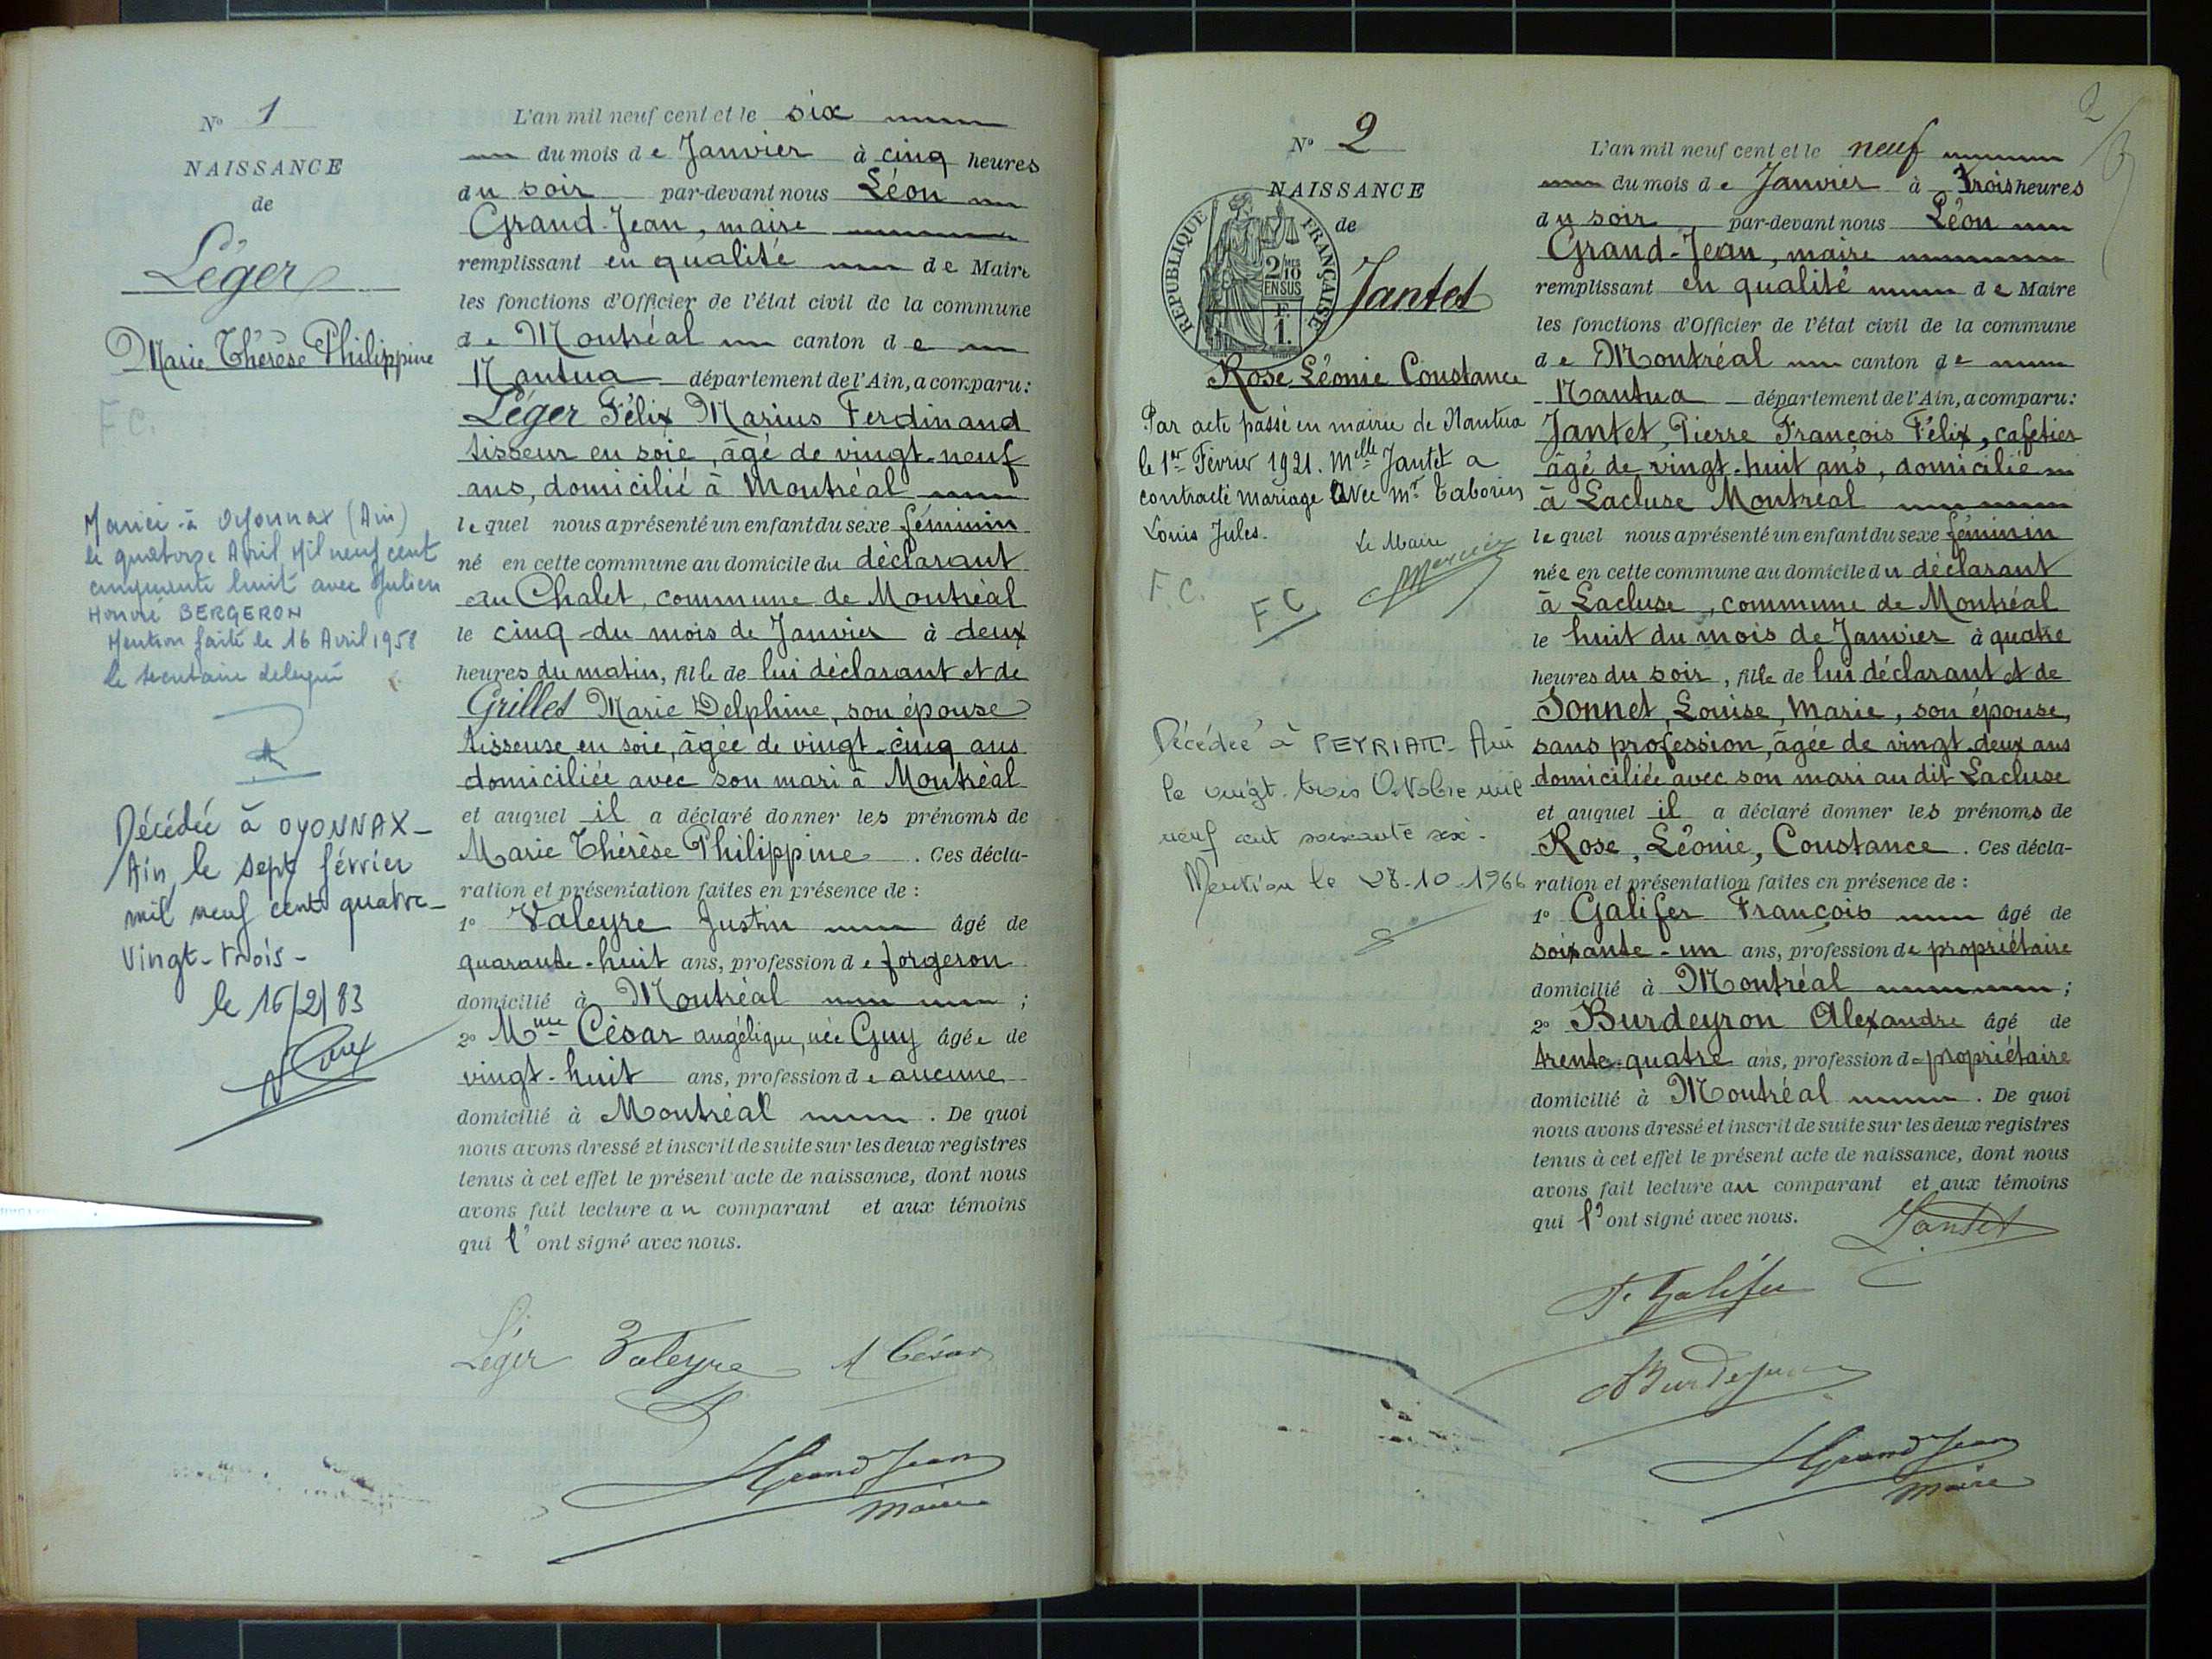 N° 1
NAISSANCE
de
Léger
Marie Thérèse Philippine
F.C.
Mariée à Oyonnax (Ain)
le quatorze Avril Mil neuf cent
cinquante huit avec Julien
Honoré BERGERON
Mention faite le 16 Avril 1958
le secrétaire délégué
Décédée à OYONNAX -
Ain, le sept février
mil neuf cent quatre-
vingt-trois -
le 16/2/83
L'an mil neuf cent et le six
du mois de Janvier à cinq heures
du soir par-devant nous Léon
Grand-Jean, maire
remplissant en qualité de Maire
les fonctions d'Officier de l'état civil de la commune
de Montréal canton de
Nantua département de l'Ain, a comparu:
Léger Félix Marius Ferdinand
tisseur en soie, âgé de vingt-neuf
ans, domicilié à Montréal
lequel nous a présenté un enfant du sexe féminin
né en cette commune au domicile du déclarant
au Chalet, commune de Montréal
le cinq du mois de Janvier à deux
heures du matin, fille de lui déclarant et de
Grillet Marie Delphine, son épouse
tisseuse en soie, âgée de vingt-cinq ans
domiciliée avec son mari à Montréal
et auquel il a déclaré donner les prénoms de
Marie Thérèse Philippine. Ces décla-
ration et présentation faites en présence de :
1° Valeyre Justin âgé de
quarante-huit ans, profession de forgeron
domicilié à Montréal ;
2° Mme César angélique, née Guy âgée de
vingt-huit ans, profession de aucune
domicilié à Montréal . De quoi
nous avons dressé et inscrit de suite sur les deux registres
tenus à cet effet le présent acte de naissance, dont nous
avons fait lecture au comparant et aux témoins
qui l'ont signé avec nous.
Léger Valeyre A César
Grand Jean
maire
2
N° 2
NAISSANCE
de
REPUBLIQUE FRANÇAISE
2/10 MES
EN SUS
F.
1.
Jantet
Rose Léonie Constance
Par acte passé en mairie de Nantua
le 1er Février 1921. Melle Jantet a
contracté mariage avec Mr Taborin
Louis Jules.
Le Maire
Mercier
F.C.
F.C.
Décédée à PEYRIAT - Ain
le vingt-trois Octobre mil
neuf cent soixante six.
Mention le 28-10-1966
L'an mil neuf cent et le neuf
du mois de Janvier à trois heures
du soir par-devant nous Léon
Grand-Jean, maire
remplissant en qualité de Maire
les fonctions d'Officier de l'état civil de la commune
de Montréal canton de
Nantua département de l'Ain, a comparu:
Jantet, Pierre François Félix, cafetier
âgé de vingt-huit ans, domicilié
à Lacluse Montréal
lequel nous a présenté un enfant du sexe féminin
née en cette commune au domicile du déclarant
à Lacluse, commune de Montréal
le huit du mois de Janvier à quatre
heures du soir, fille de lui déclarant et de
Sonnet, Louise, Marie, son épouse,
sans profession, âgée de vingt-deux ans
domiciliée avec son mari au dit Lacluse
et auquel il a déclaré donner les prénoms de
Rose, Léonie, Constance. Ces décla-
ration et présentation faites en présence de :
1° Galifer François âgé de
soixante-un ans, profession de propriétaire
domicilié à Montréal ;
2° Burdeyron Alexandre âgé de
trente-quatre ans, profession de propriétaire
domicilié à Montréal . De quoi
nous avons dressé et inscrit de suite sur les deux registres
tenus à cet effet le présent acte de naissance, dont nous
avons fait lecture au comparant et aux témoins
qui l'ont signé avec nous. Jantet
F. Galifer
Burdeyron
Grand Jean
maire